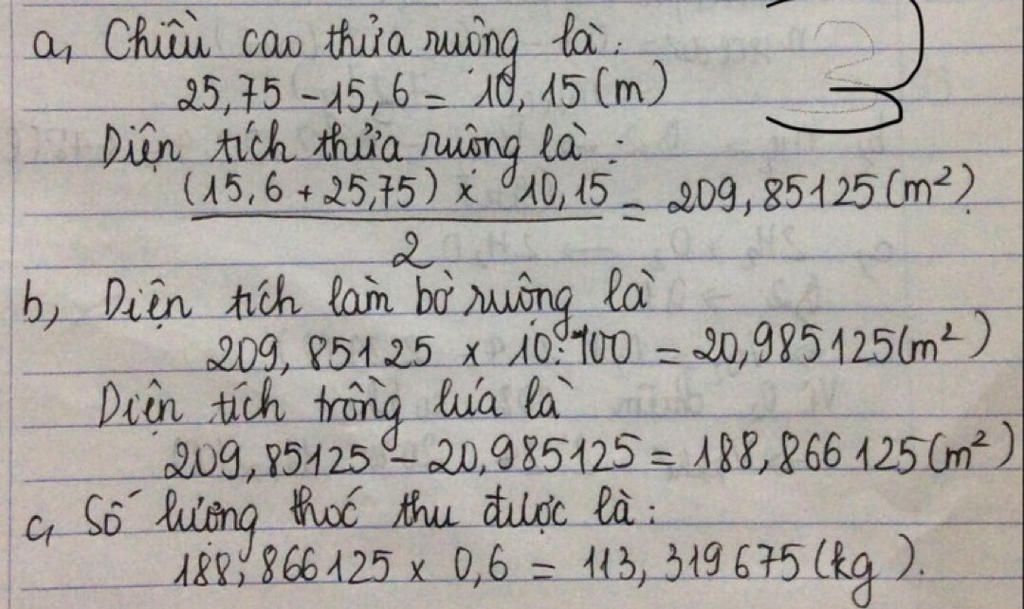 a, Chiều cao thửa ruộng là:
25,75 - 15,6 = 10,15 (m)
Diện tích thửa ruộng là:
(15,6 + 25,75) x 10,15 / 2 = 209,85125 (m²).
b, Diện tích làm bờ ruộng là
209,85125 x 10:100 = 20,985125 (m²)
Diện tích trồng lúa là
209,85125 - 20,985125 = 188,866125 (m²)
c, Số lượng thóc thu được là:
188,866125 x 0,6 = 113,319675 (kg).